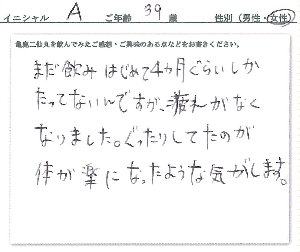 イニシャル A ご年齢 39 歳 性別（男性・女性）
亀鹿二仙丸を飲んでみたご感想・ご興味のある点などをお書きください。
まだ飲みはじめて4カ月ぐらいしか
たってないんですが、疲れがなく
なりました。ぐったりしてたのが
体が楽になったような気がします。